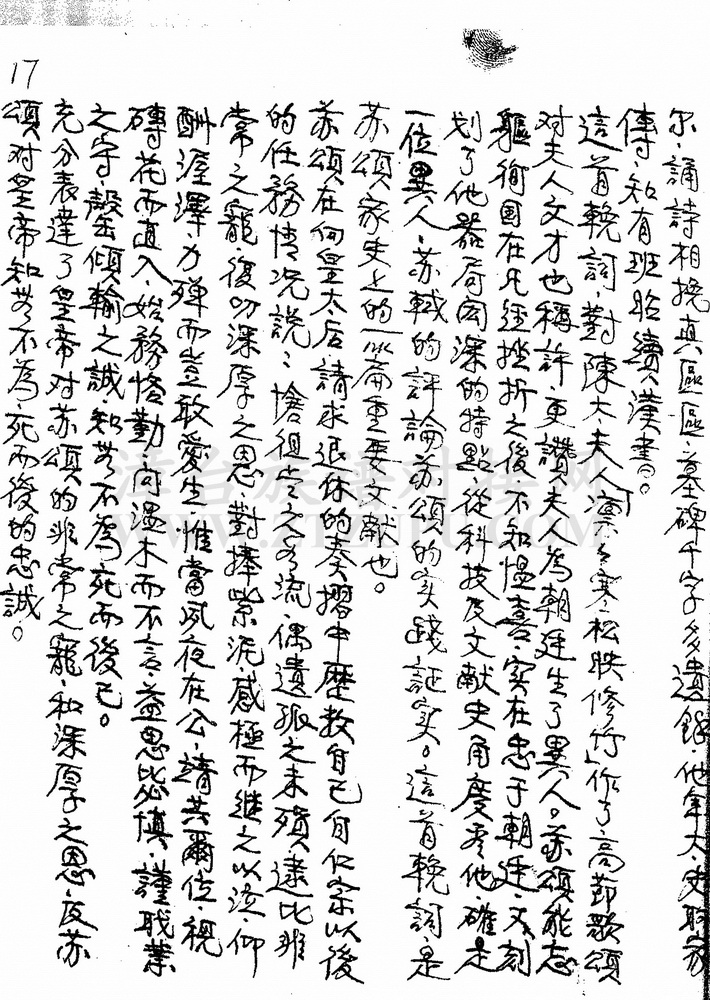 17
尔、誦詩相挽真區區、墓碑千字多遺録、他年大史聊家
傳、知有班昭續漢書。
這首輓詞、對陳太夫人「凜々寒松映修竹」作了高節歌頌
对夫人文才也稱許、更讚夫人為朝廷生了異人。苏頌能忘
軀徇国在凡經挫折之後不知愠喜、实在忠于朝廷、又刻
划了他器苛闳深的特點、從科技及文献史角度看他確是
一位異人、苏軾的評論苏頌的实踐証实。這首輓詞、是
苏頌家史上的一篇重要文献也。
苏頌在向皇太后請求退休的奏摺中歷敘自己自仁宗以後
的任務情况說：愴徂 之 流、偶遺孤之未殞、逮比非
常之寵、復叨深厚之恩、對捧紫泥、感極而継之以泣、仰
酬渥澤、力殫而豈敢愛生、惟當夙夜在公、靖共爾位、視
磚花而直入、始務恪勤、向溫木而不言、益思必慎、謹職業
之守、罄傾輸之誠、知 不為、死而後已。
充分表達了皇帝对苏頌的非常之寵、和深厚之恩、及苏
頌对皇帝知 不為、死而後的忠誠。
漳台族譜对接网
WWW.ZTZUPU.COM